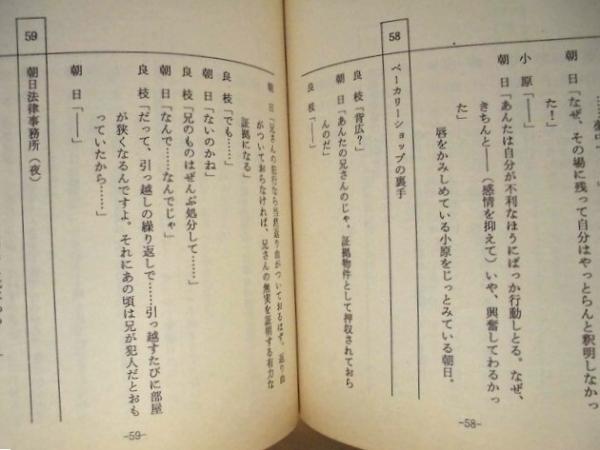 朝　日「なぜ、その場に残って自分はやっとらんと釈明しなかっ
た！」
小　原「――」
朝　日「あんたは自分が不利なほうにばっか行動しとる。なぜ、
きちんと――（感情を抑えて）いや、興奮してわるかっ
た」
唇をかみしめている小原をじっとみている朝日。
58
ベーカリーショップの裏手
良　枝「背広？」
朝　日「あんたの兄さんのじゃ。証拠物件として押収されておら
んのだ」
良　枝「――」
-58-
朝　日「兄さんの犯行なら当然返り血がついておるはず。返り血
がついておらなければ、兄さんの無実を証明する有力な
証拠になる」
良　枝「でも……」
朝　日「ないのかね」
良　枝「兄のものはぜんぶ処分して……」
朝　日「なんで……なんでじゃ」
良　枝「だって、引っ越しの繰り返しで……引っ越すたびに部屋
が狭くなるんですよ。それにあの頃は兄が犯人だとおも
っていたから……」
朝　日「――」
59
朝日法律事務所（夜）
-59-